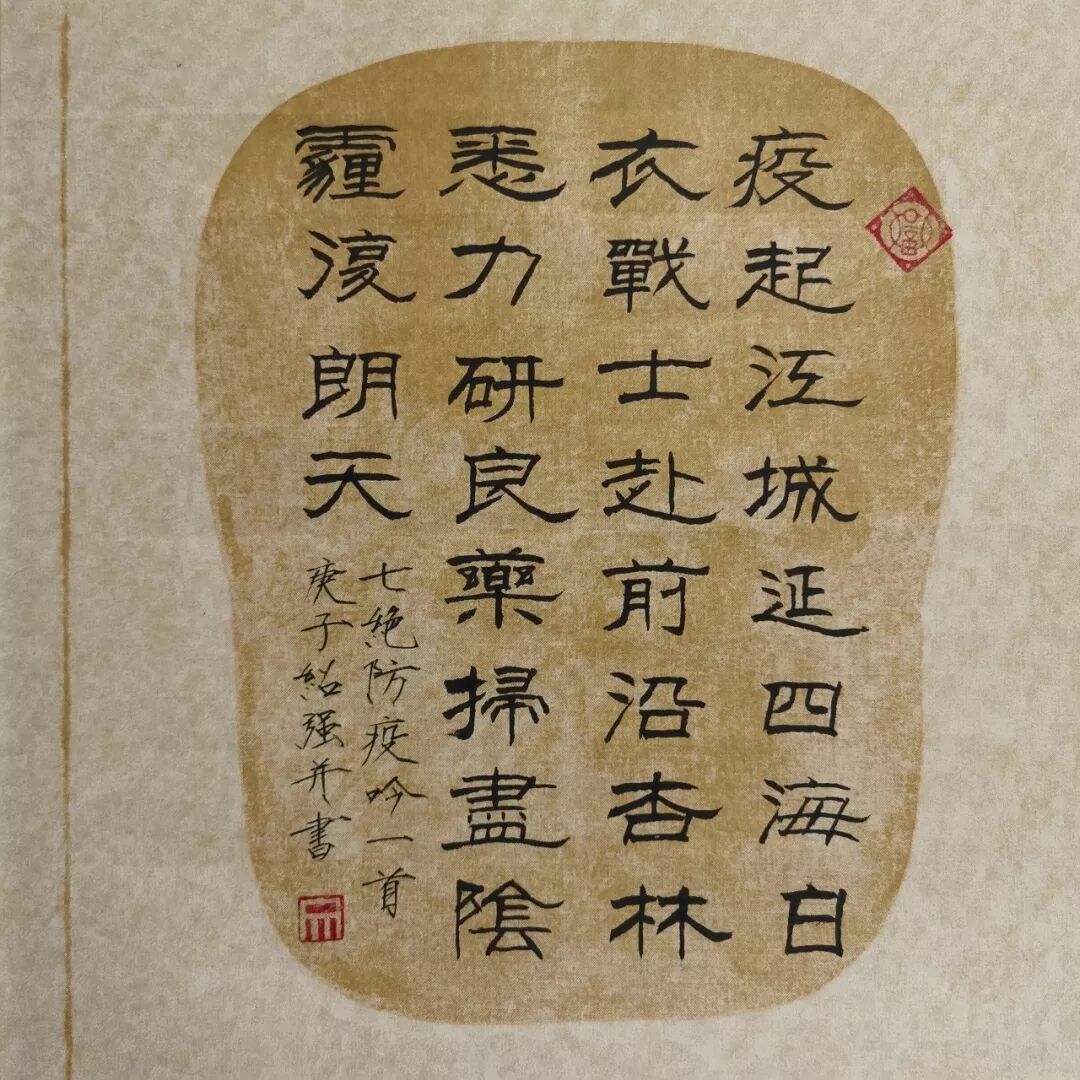 疫起江城延四海白
衣戰士赴前沿杏林
悉力研良藥掃盡陰
霾復朗天
七絕防疫吟一首
庚子紹强并書